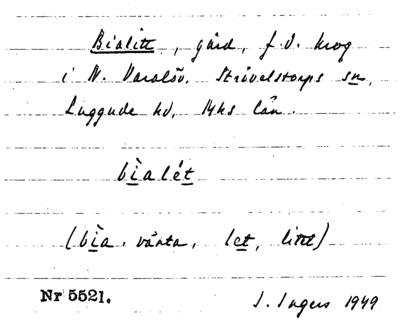 Bialitt, gård, f.d. krog
i N. Varalöv, Strövelstorps sn,
Luggude hd, Mhs län.
bìalét
(bìa, vänta, let, litet)
Nr 5521.
I. Ingers 1949